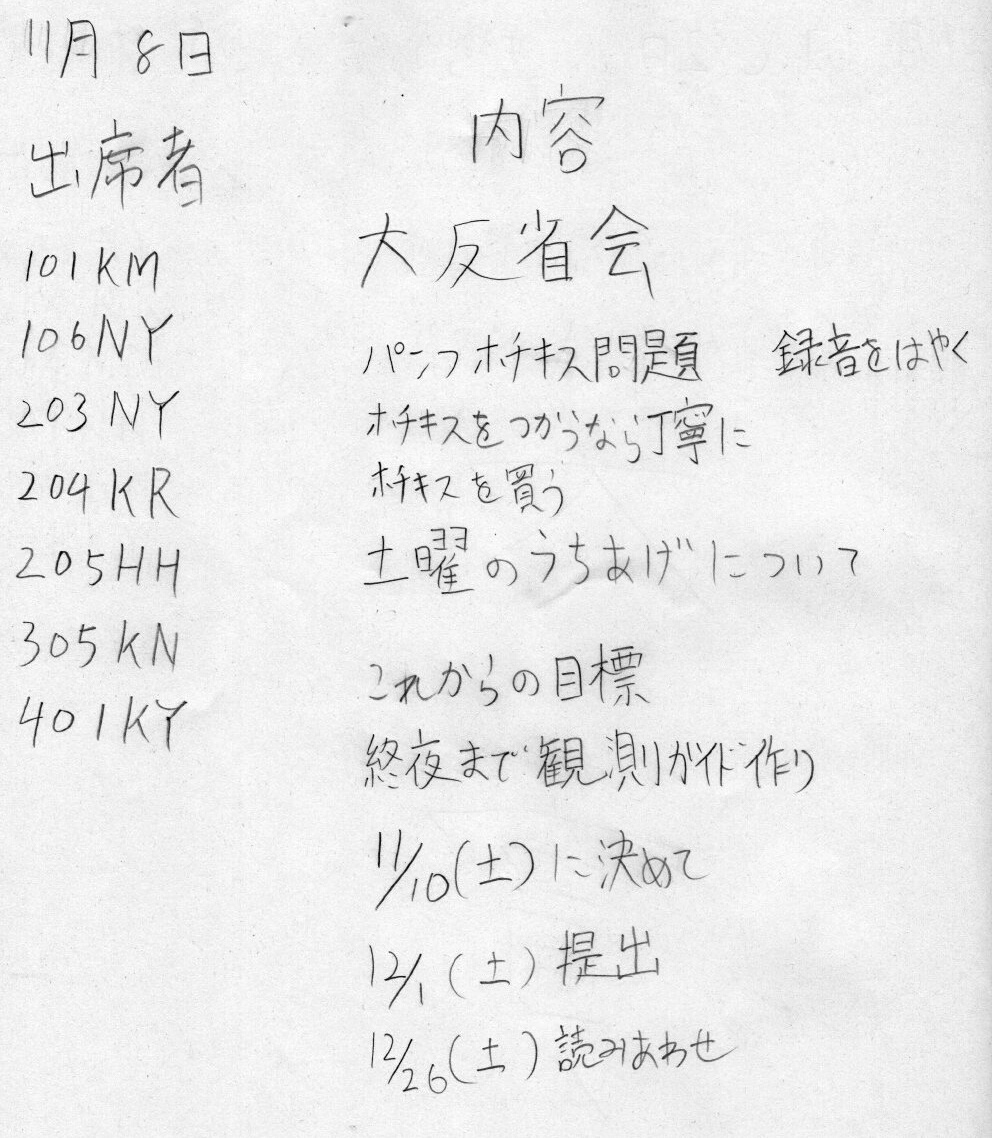 11月8日
出席者
101KM
106NY
203NY
204KR
205HH
305KN
401KY
内容
大反省会
パンフホチキス問題　録音をはやく
ホチキスをつかうなら丁寧に
ホチキスを買う
土曜のうちあげについて
これからの目標
終夜まで観測ガイド作り
11/10(土)に決めて
12/1(土)提出
12/26(土)読みあわせ